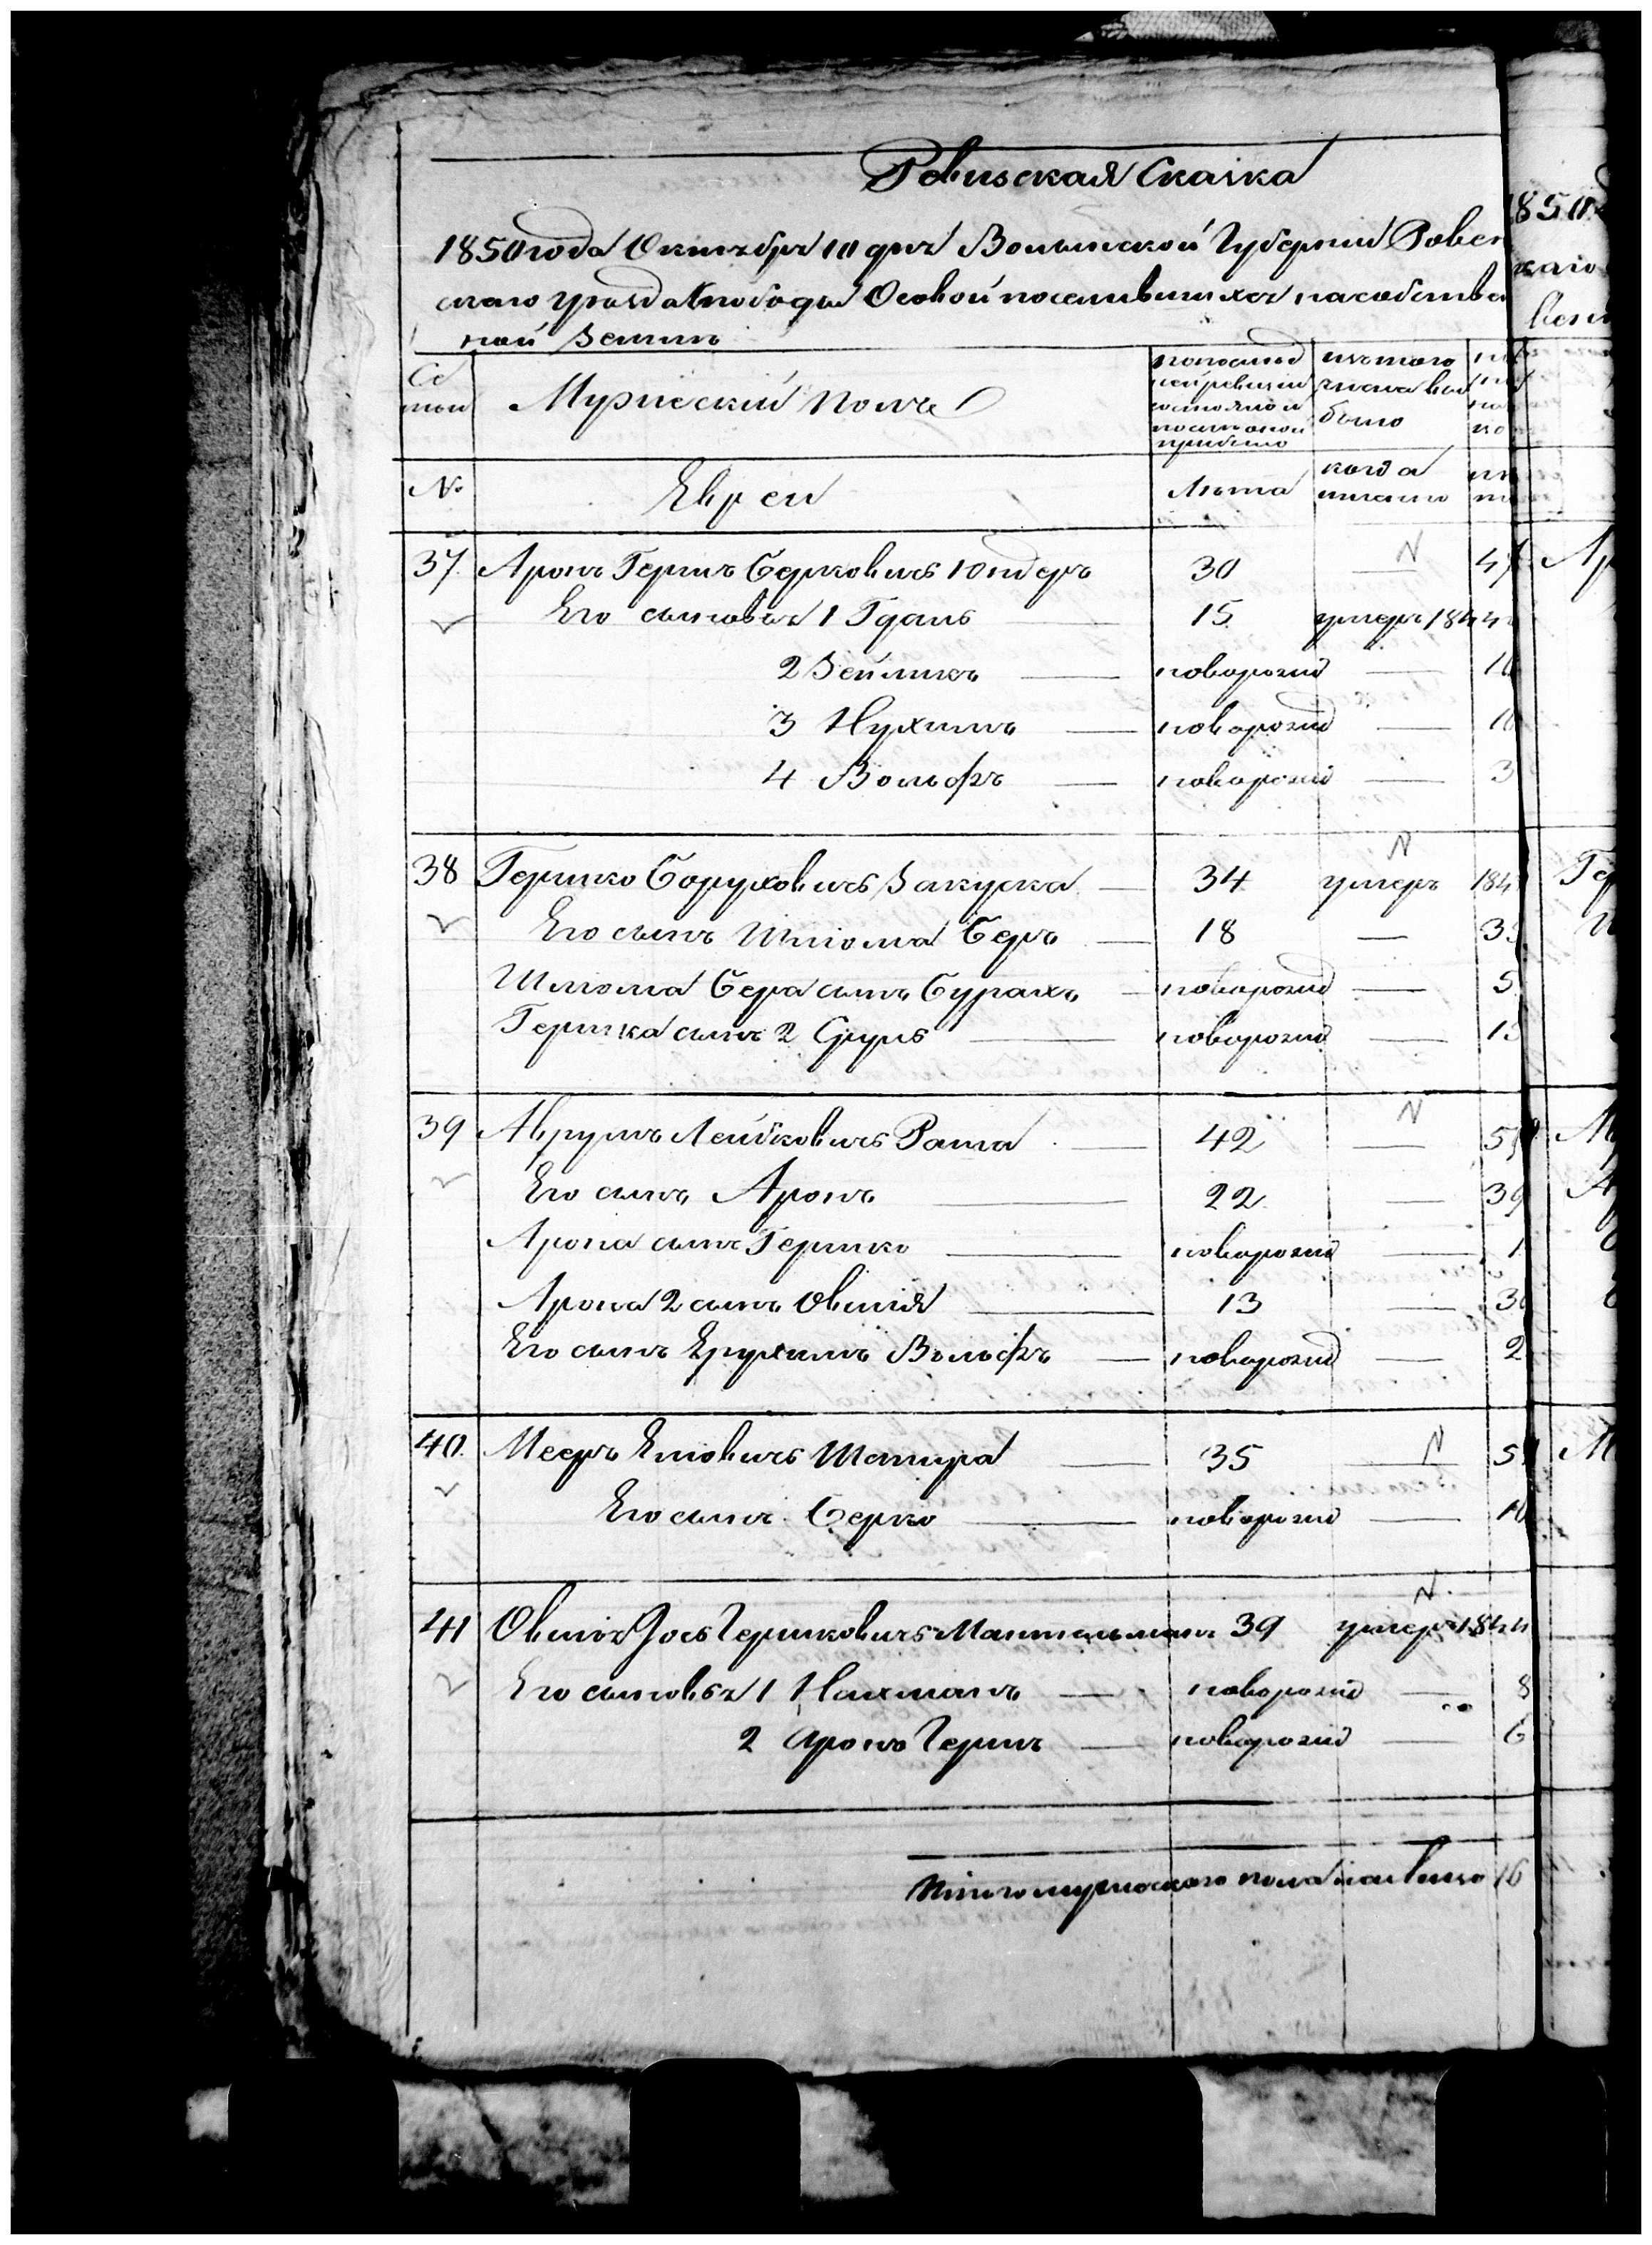 Ревизская Сказка
1850 года Октября 10 дня Волынской Губернии Ровен
скаго уезда слободы Осовой поселившихся на собствен
ной земли
Се
мьи
Мужеский полъ
по послед
ней ревизии
состояло и
после оной
прибыло
изъ того
числа вы
было
№
Евреи
Лета
когда
имянно
37. Аронъ Гершъ Берковичъ Юндеръ 30 — 47
Его сыновья 1 Гдаль 15 умеръ 1844
2 Зейликъ — новорожд —
3 Нухимъ — новорожд —
4 Вольфъ — новорожд — 3
38 Гершко Боруховичъ Закуска — 34 умеръ 184
Его сынъ Шлома Беръ — 18 —
Шлома Бера сынъ Бурахъ — новорожд — 5
Гершка сынъ 2 Сруль — новорожд —
39 Аврумъ Лейбковичъ Раша — 42 —
Его сынъ Аронъ — 22 — 39
Арона сынъ Гершко — новорожд —
Арона 2 сынъ Овшія — 13 —
Его сынъ Ерухимъ Вольфъ — новорожд — 2
40. Мееръ Еловичъ Шапира — 35 —
Его сынъ Берко — новорожд —
41 Овшія Іось Гершковичъ Мантельманъ 39 умеръ 1844
Его сыновья 1 Нахманъ — новорожд — 8
2 Аронъ Гершъ — новорожд — 6
Итого мужескаго пола налицо 16